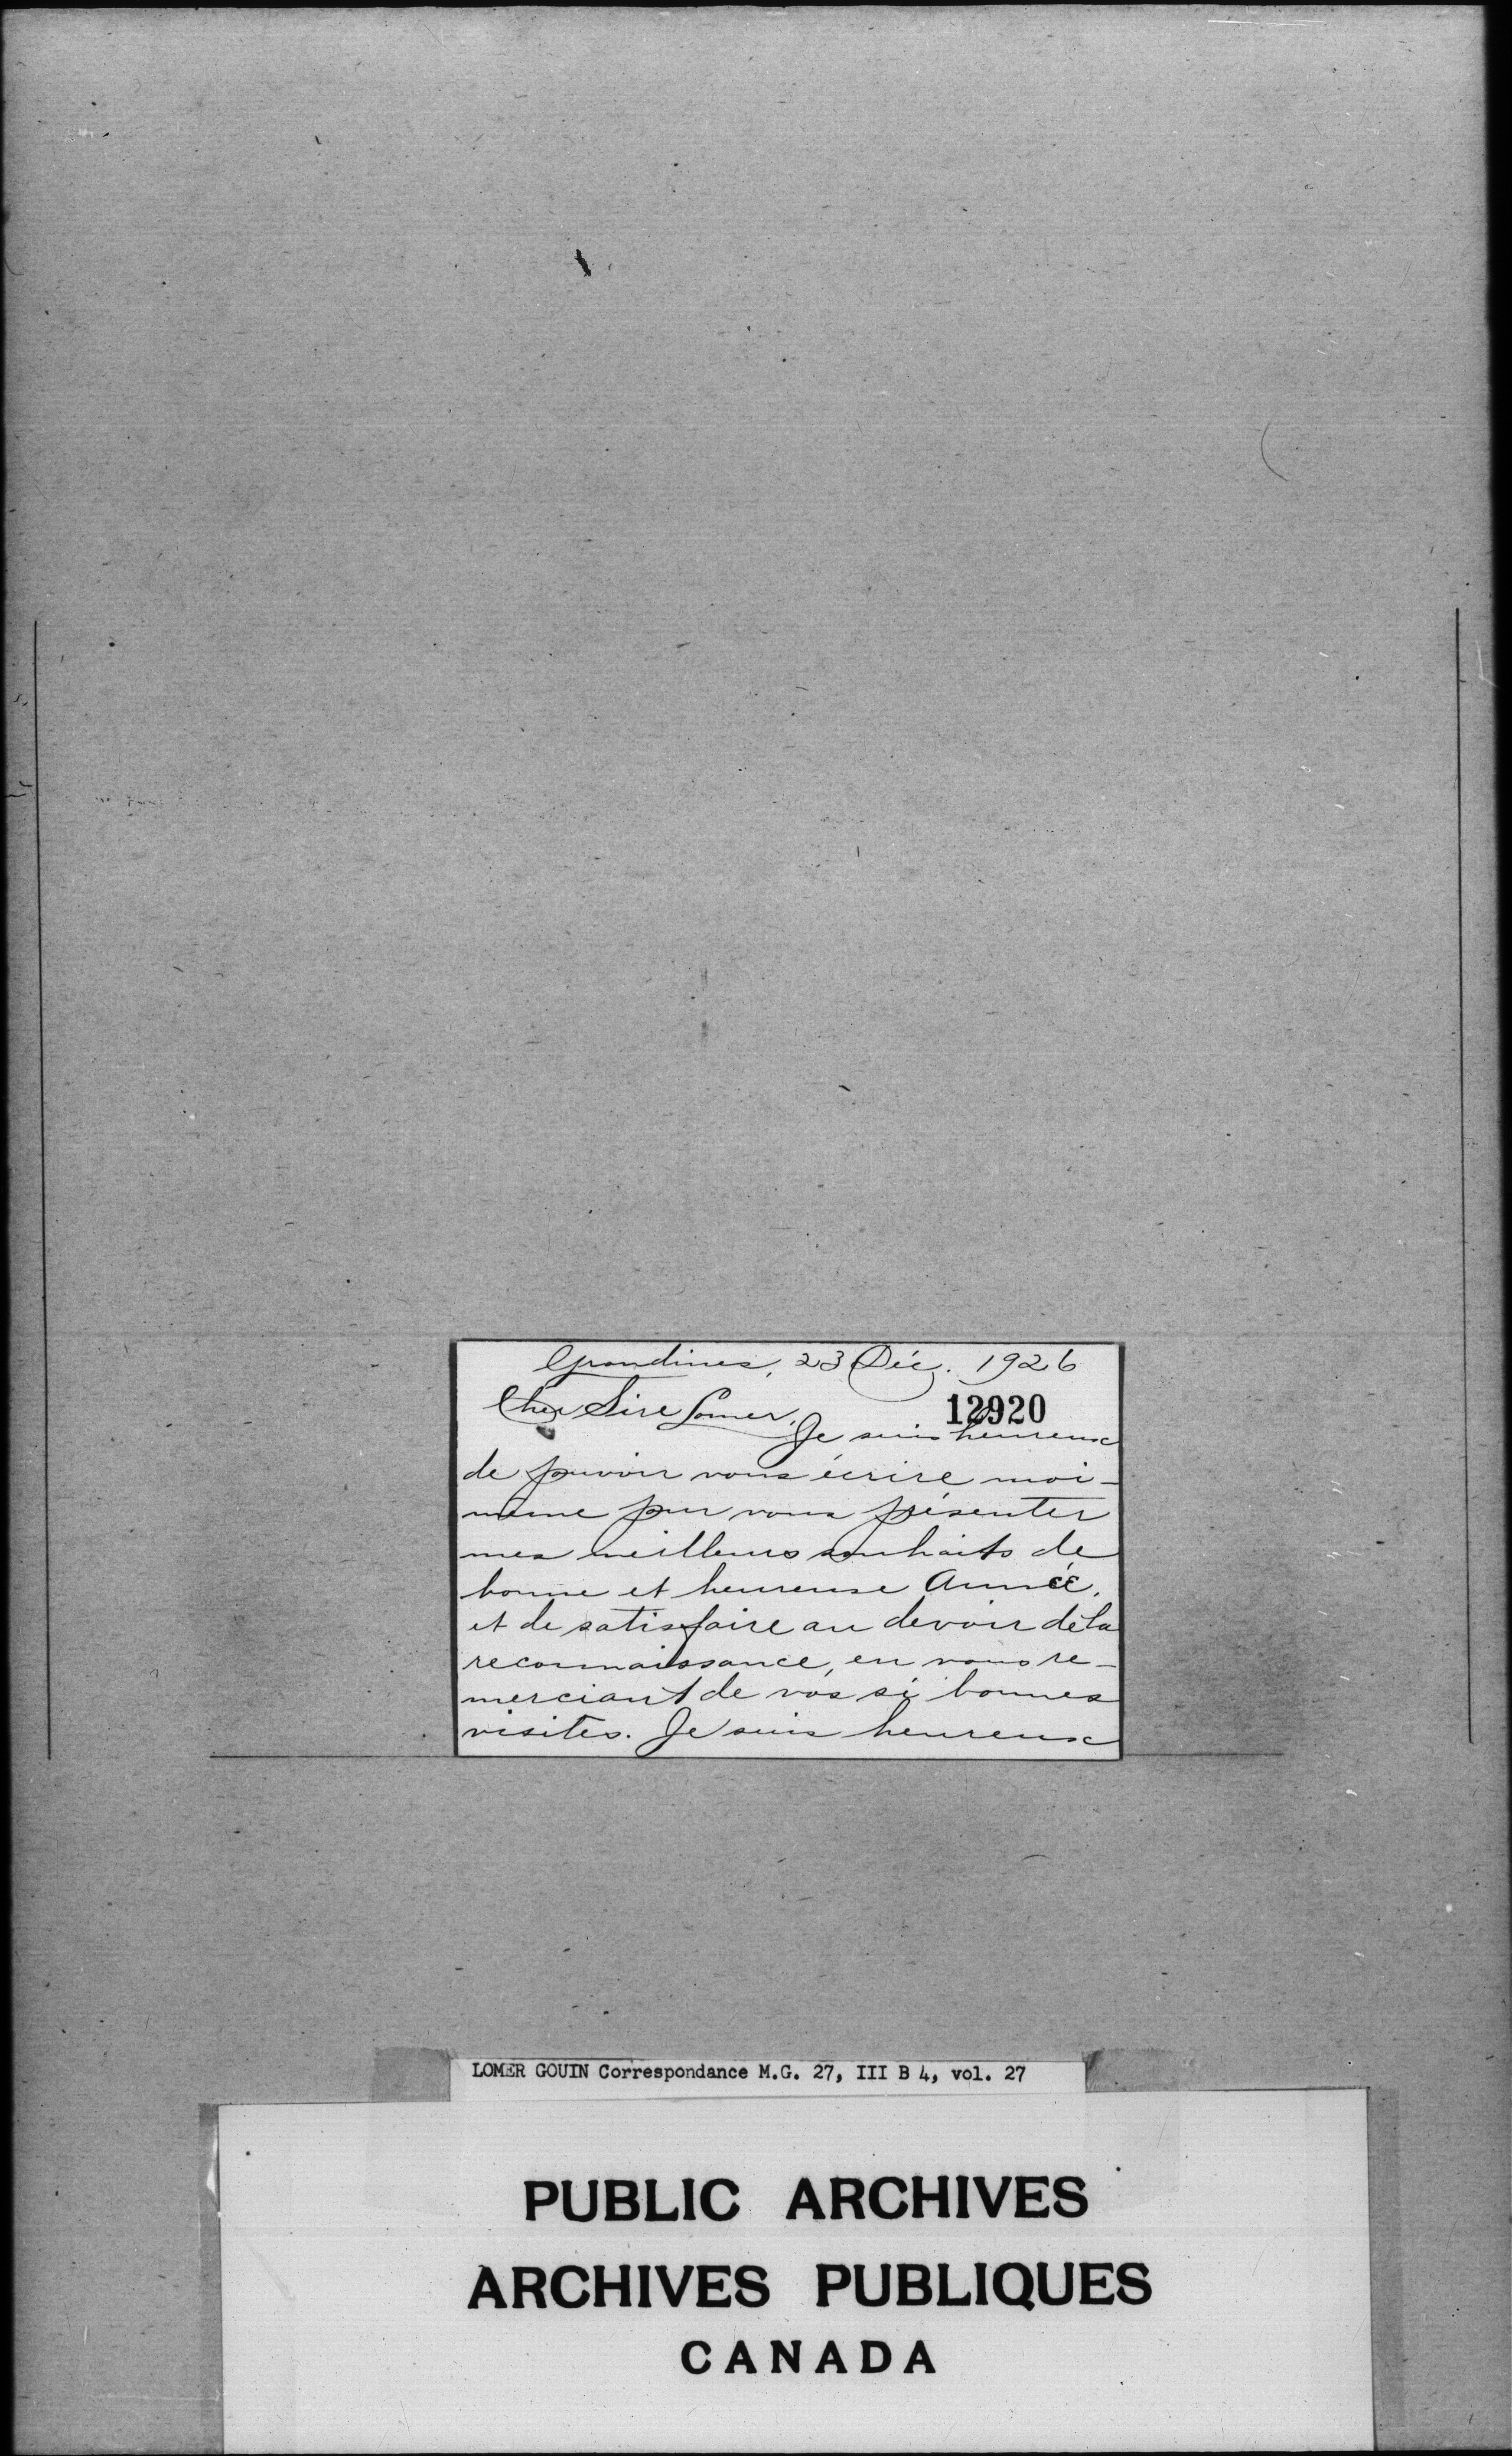 Grondines, 23 Déc. 1926
Cher Sire Lomer,
12920
Je suis heureux
de pouvoir vous écrire moi-
même pour vous présenter
mes meilleurs souhaits de
bonne et heureuse Année,
et de satisfaire au devoir de la
reconnaissance, en vous re-
merciant de vos si bonnes
visites. Je suis heureux
LOMER GOUIN Correspondance M.G. 27, III B 4, vol. 27
PUBLIC ARCHIVES
ARCHIVES PUBLIQUES
CANADA